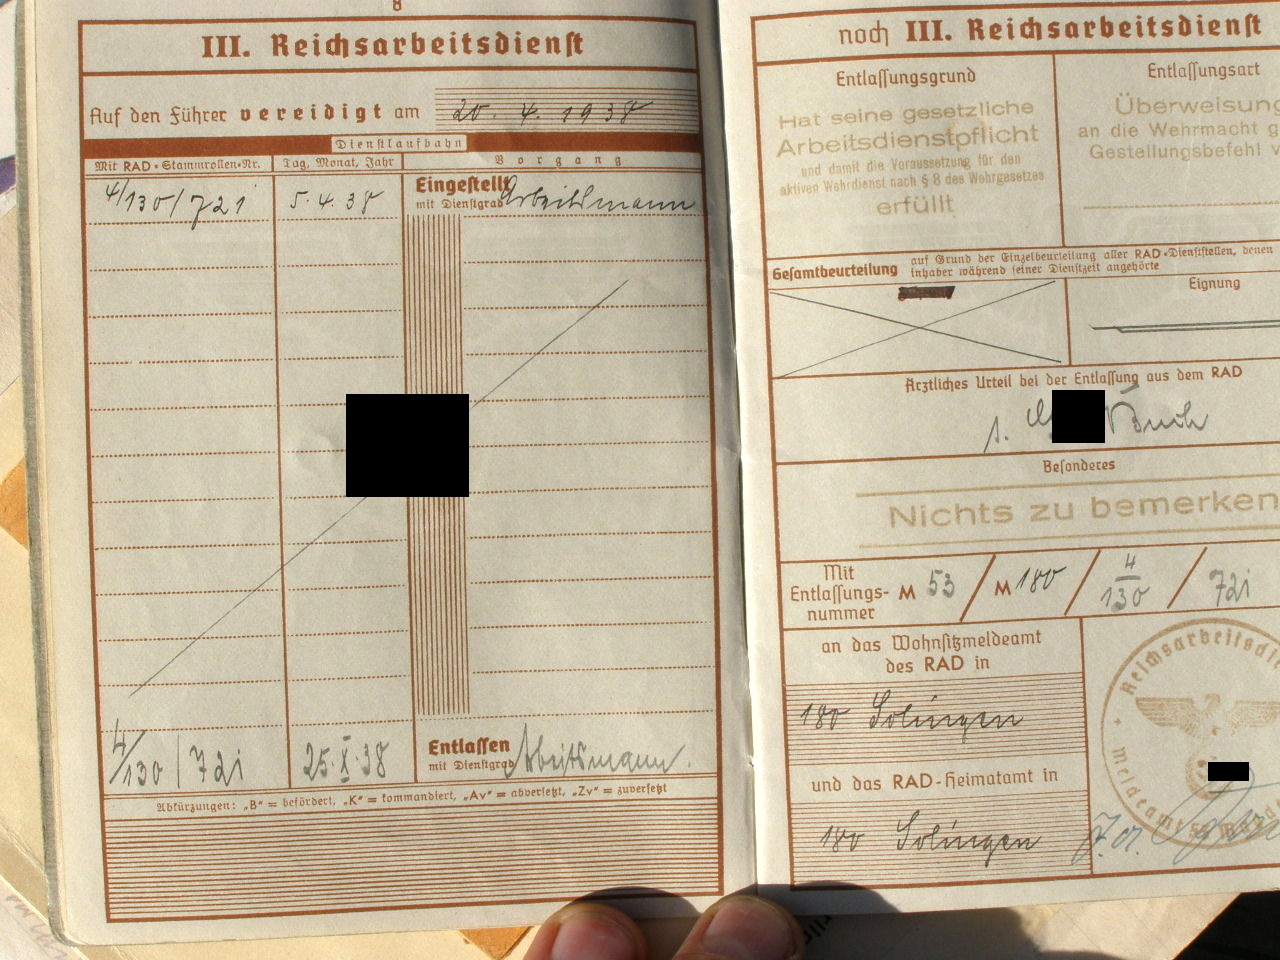 8
III. Reichsarbeitsdienst
Auf den Führer vereidigt am 20. 4. 1938
Dienstlaufbahn
Mit RAD-Stammrollen-Nr.
Tag, Monat, Jahr
Vorgang
4/130/721
5. 4. 38
Eingestellt
mit Dienstgrad
Arbeitsmann
4/130/721
25. X. 38
Entlassen
mit Dienstgrad
Arbeitsmann.
Abkürzungen: „B" = befördert, „K" = kommandiert, „Av" = abversetzt, „Zv" = zuversetzt
noch III. Reichsarbeitsdienst
Entlassungsgrund
Hat seine gesetzliche
Arbeitsdienstpflicht
und damit die Voraussetzung für den
aktiven Wehrdienst nach § 8 des Wehrgesetzes
erfüllt
Entlassungsart
Überweisung
an die Wehrmacht
Gestellungsbefehl
Gesamtbeurteilung
auf Grund der Einzelbeurteilung aller RAD-Dienststellen, denen
Inhaber während seiner Dienstzeit angehörte
Eignung
Ärztliches Urteil bei der Entlassung aus dem RAD
Buch
Besonderes
Nichts zu bemerken
Mit
Entlassungs-
nummer
M 53 / M 180 / 4/130 / 721
an das Wohnsitzmeldeamt
des RAD in
180 Solingen
und das RAD-Heimatamt in
180 Solingen
Reichsarbeitsdi
Meldeamt